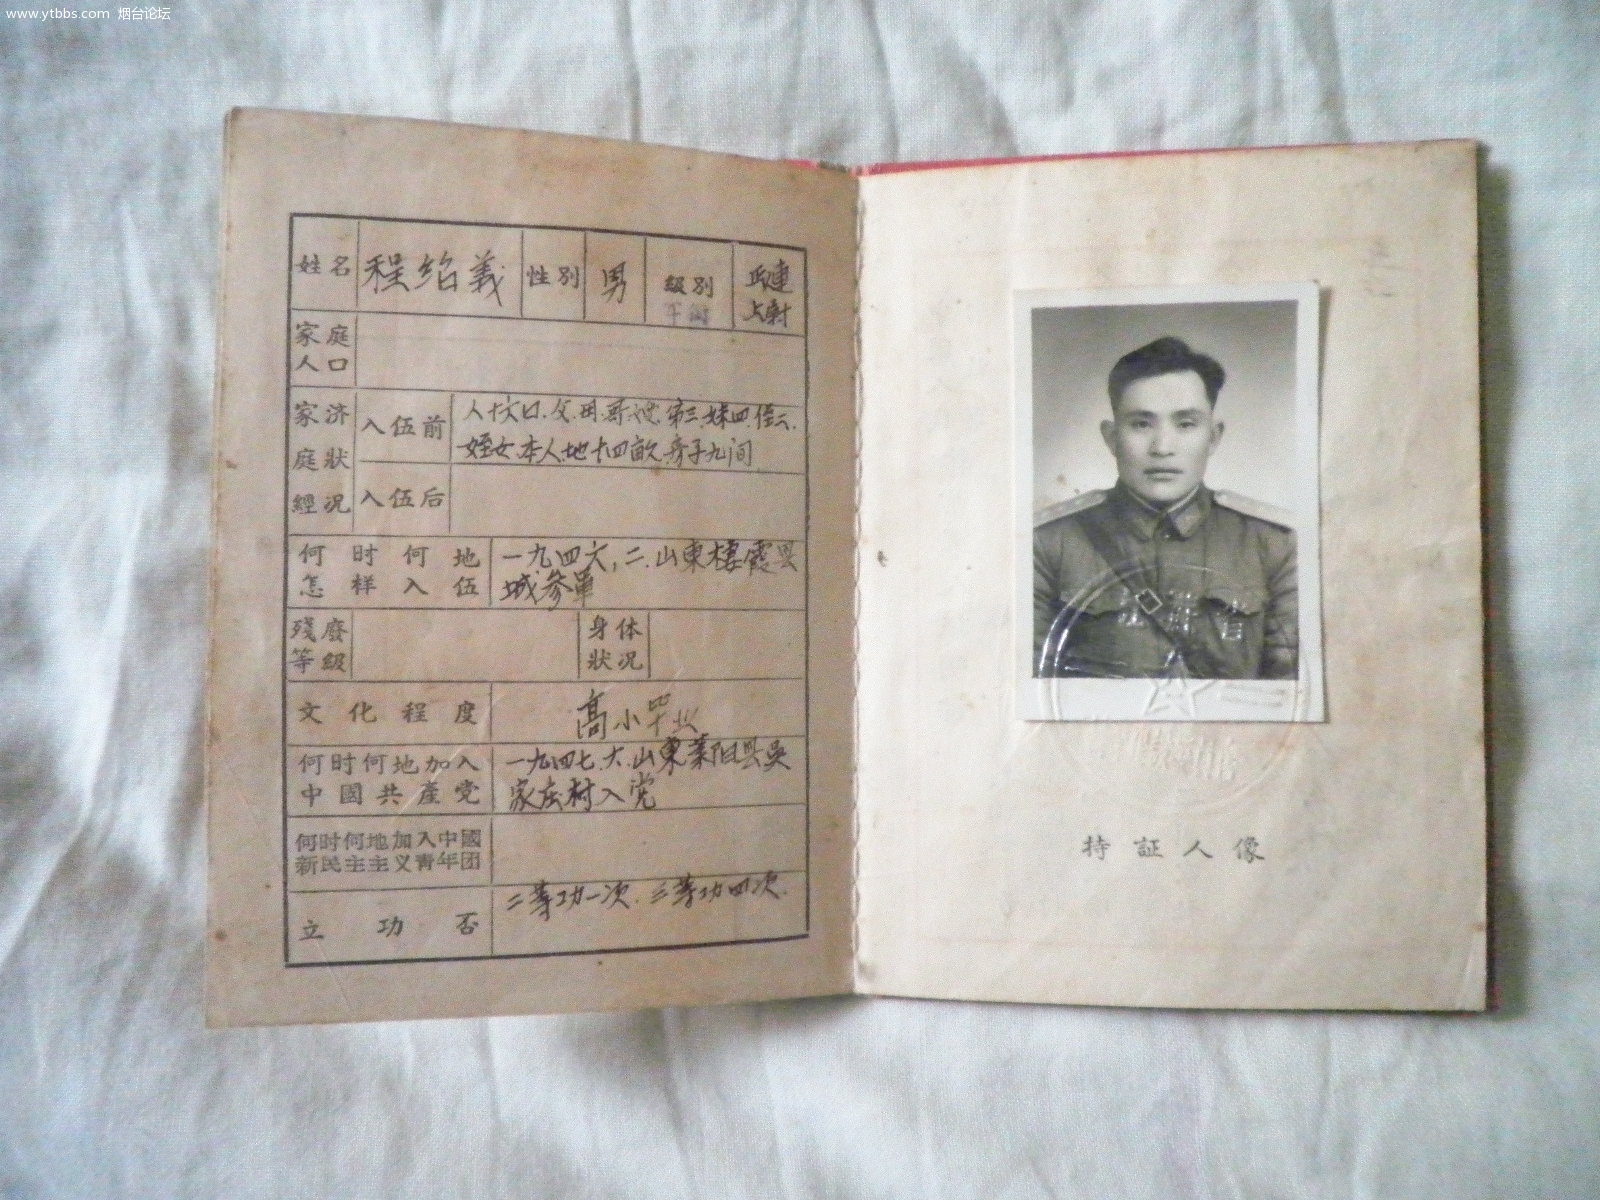 www.ytbbs.com 烟台论坛
姓名 程绍義 性别 男 级别
家庭
人口
家济
庭狀
經况
入伍前
姪女.本人.地十四畝.房子九间
入伍后
何时何地
怎样入伍
一九四六,二.山東棲霞县
城參軍
殘廢
等級
身体
狀况
文化程度 高小毕业
何时何地加入
中國共產党
一九四七.六.山東莱阳县吳
家庄村入党
何时何地加入中國
新民主主义青年团
立功否 二等功一次.三等功四次.
持証人像